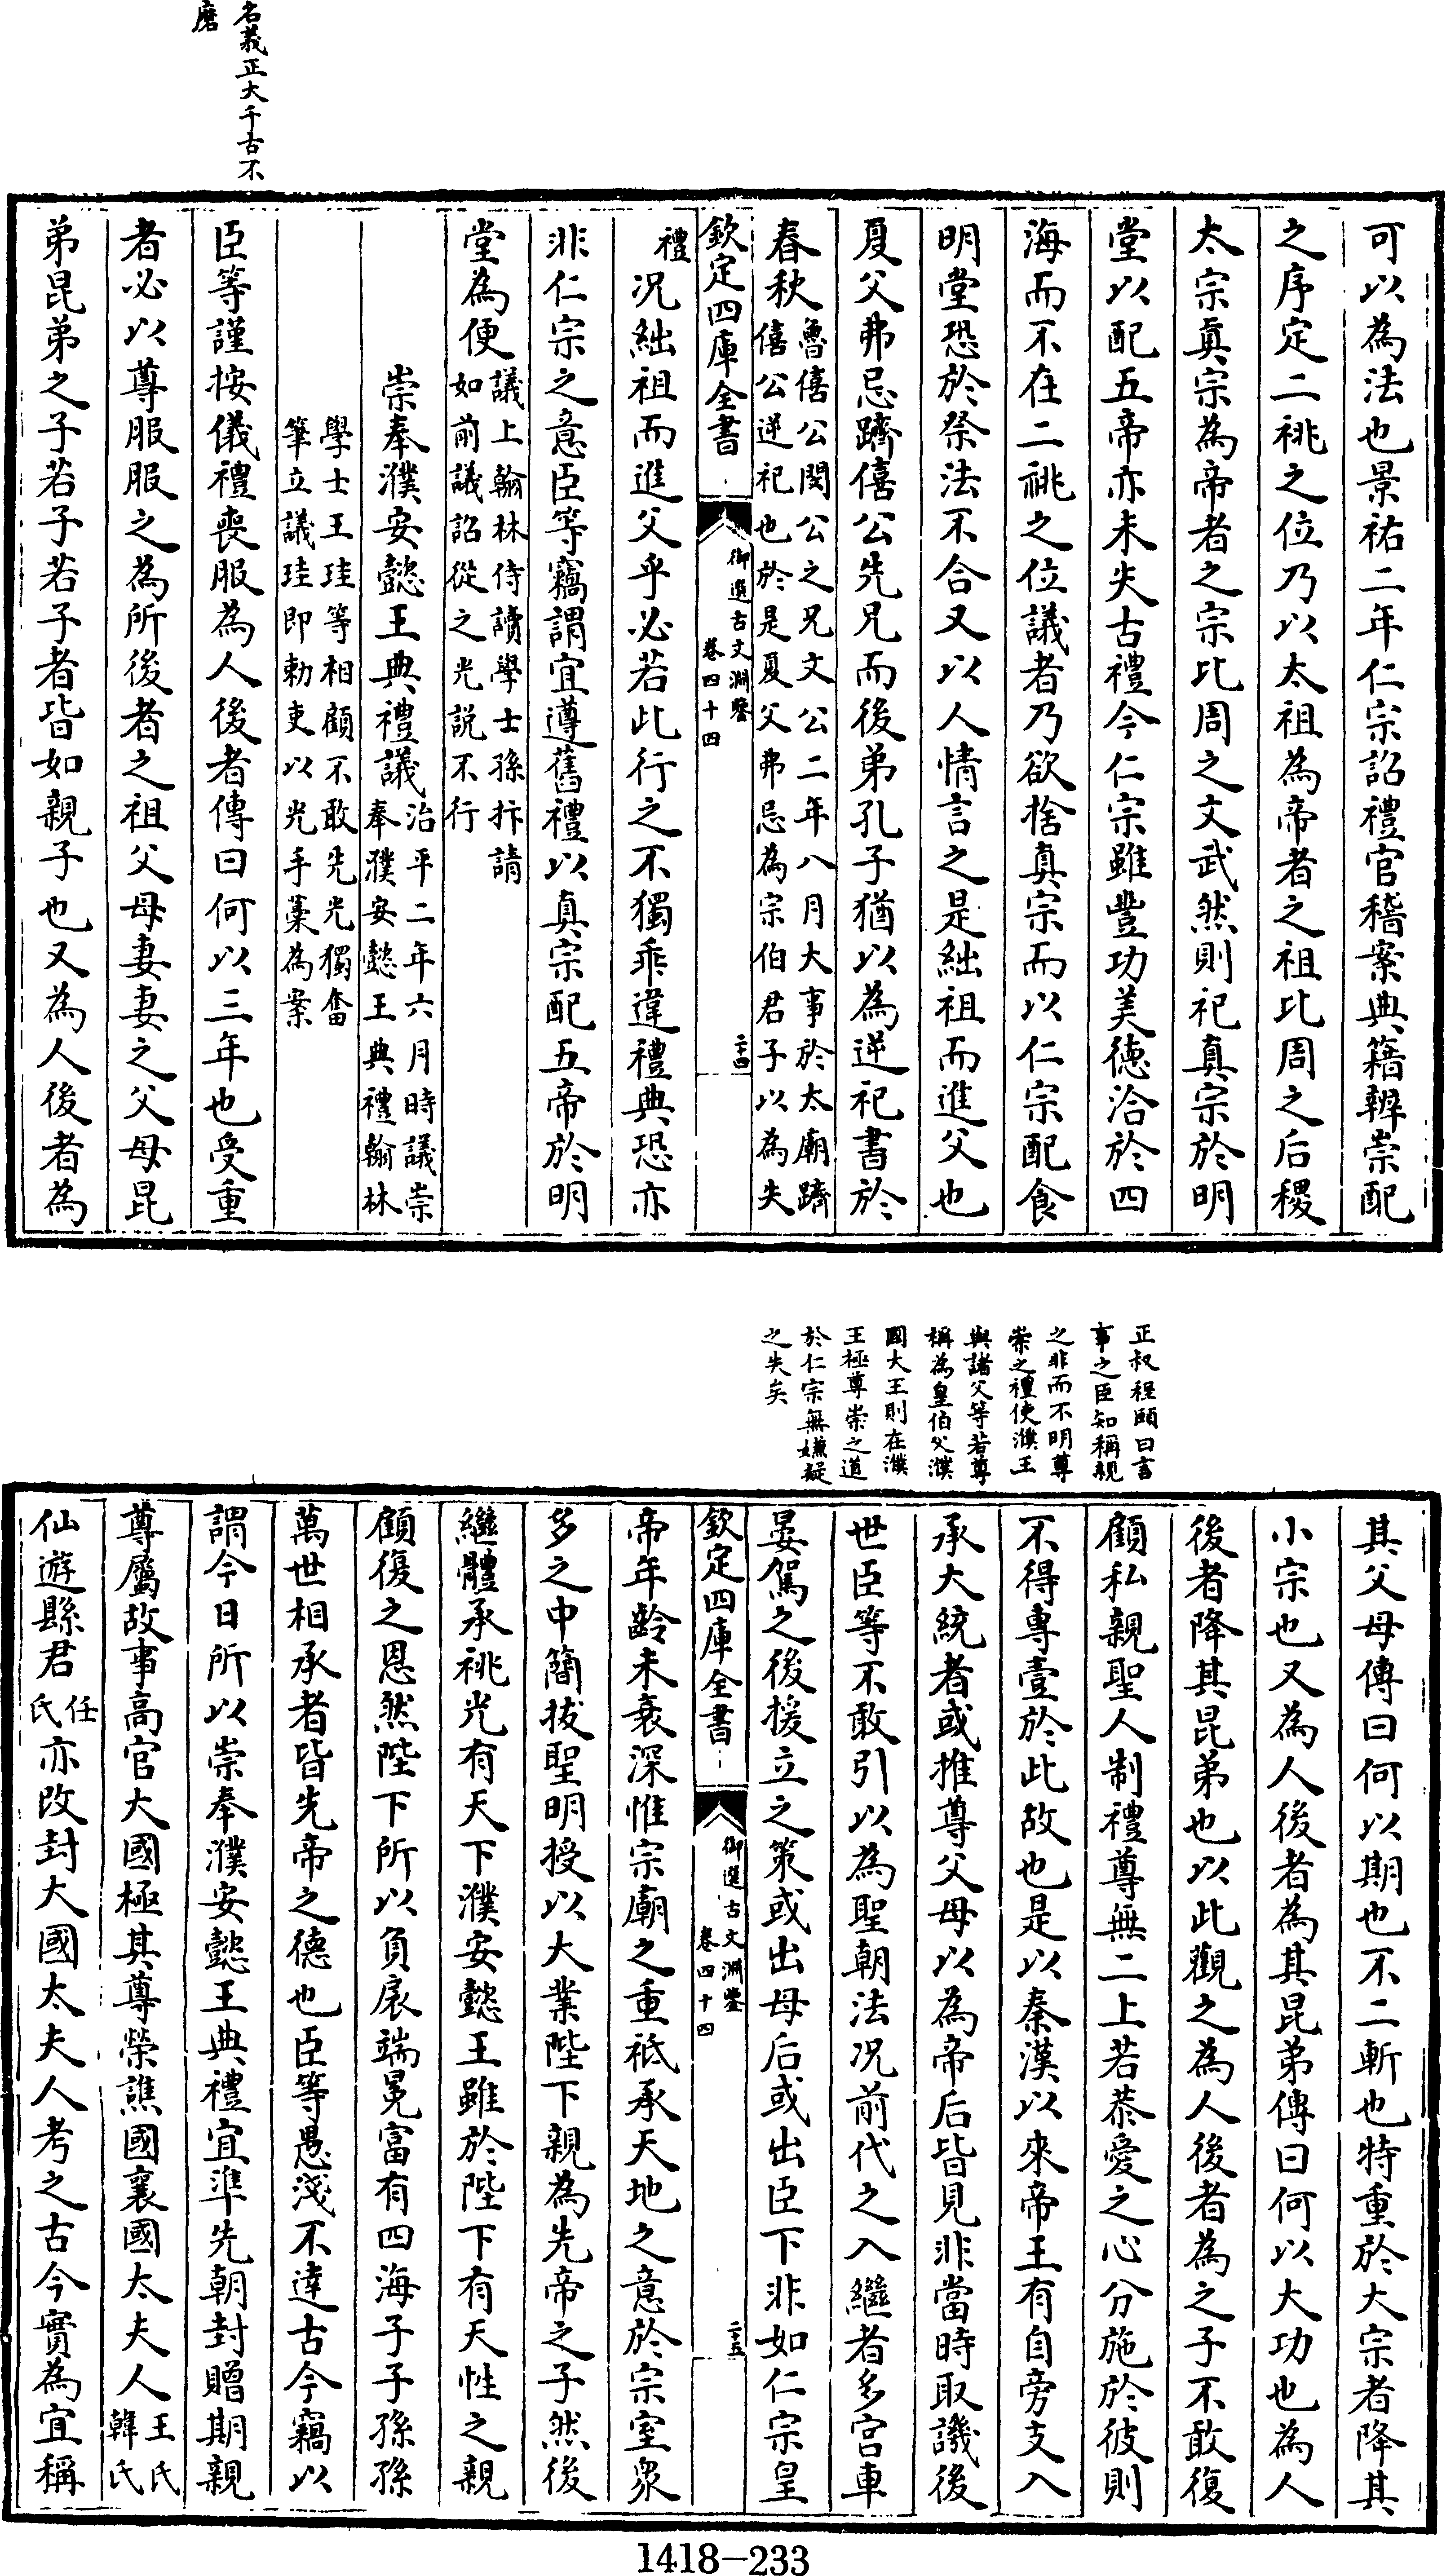 名義正大千古不
磨
可以為法也景祐二年仁宗詔禮官稽案典籍辨崇配
之序定二祧之位乃以太祖為帝者之祖比周之后稷
太宗真宗為帝者之宗比周之文武然則祀真宗於明
堂以配五帝亦未失古禮今仁宗雖豐功美徳洽於四
海而不在二祧之位議者乃欲捨真宗而以仁宗配食
明堂恐於祭法不合又以人情言之是絀祖而進父也
夏父弗忌躋僖公先兄而後弟孔子猶以為逆祀書於
春秋魯僖公閔公之兄文公二年八月大事於太廟躋
僖公逆祀也於是夏父弗忌為宗伯君子以為失
禮
欽定四庫全書
御選古文淵鑒
卷四十四
二十四
况絀祖而進父乎必若此行之不獨乖違禮典恐亦
非仁宗之意臣等竊謂宜遵舊禮以真宗配五帝於明
堂為便議上翰林侍讀學士孫抃請
如前議詔從之光説不行
崇奉濮安懿王典禮議治平二年六月時議崇
奉濮安懿王典禮翰林
學士王珪等相顧不敢先光獨奮
筆立議珪即勅吏以光手藁為案
臣等謹按儀禮喪服為人後者傳曰何以三年也受重
者必以尊服服之為所後者之祖父母妻妻之父母昆
弟昆弟之子若子若子者皆如親子也又為人後者為
正叔程頤曰言
事之臣知稱親
之非而不明尊
崇之禮使濮王
與諸父等若尊
稱為皇伯父濮
國大王則在濮
王極尊崇之道
於仁宗無嫌疑
之失矣
其父母傳曰何以期也不二斬也特重於大宗者降其
小宗也又為人後者為其昆弟傳曰何以大功也為人
後者降其昆弟也以此觀之為人後者為之子不敢復
顧私親聖人制禮尊無二上若恭愛之心分施於彼則
不得專壹於此故也是以秦漢以來帝王有自旁支入
承大統者或推尊父母以為帝后皆見非當時取譏後
世臣等不敢引以為聖朝法况前代之入繼者多宫車
晏駕之後援立之策或出母后或出臣下非如仁宗皇
欽定四庫全書
御選古文淵鑒
卷四十四
二十五
帝年齡未衰深惟宗廟之重祗承天地之意於宗室衆
多之中簡拔聖明授以大業陛下親為先帝之子然後
繼體承祧光有天下濮安懿王雖於陛下有天性之親
顧復之恩然陛下所以負扆端冕富有四海子子孫孫
萬世相承者皆先帝之德也臣等愚淺不達古今竊以
謂今日所以崇奉濮安懿王典禮宜準先朝封贈期親
尊屬故事高官大國極其尊榮譙國襄國太夫人王氏
韓氏
仙遊縣君任
氏亦改封大國太夫人考之古今實為宜稱
1418-233